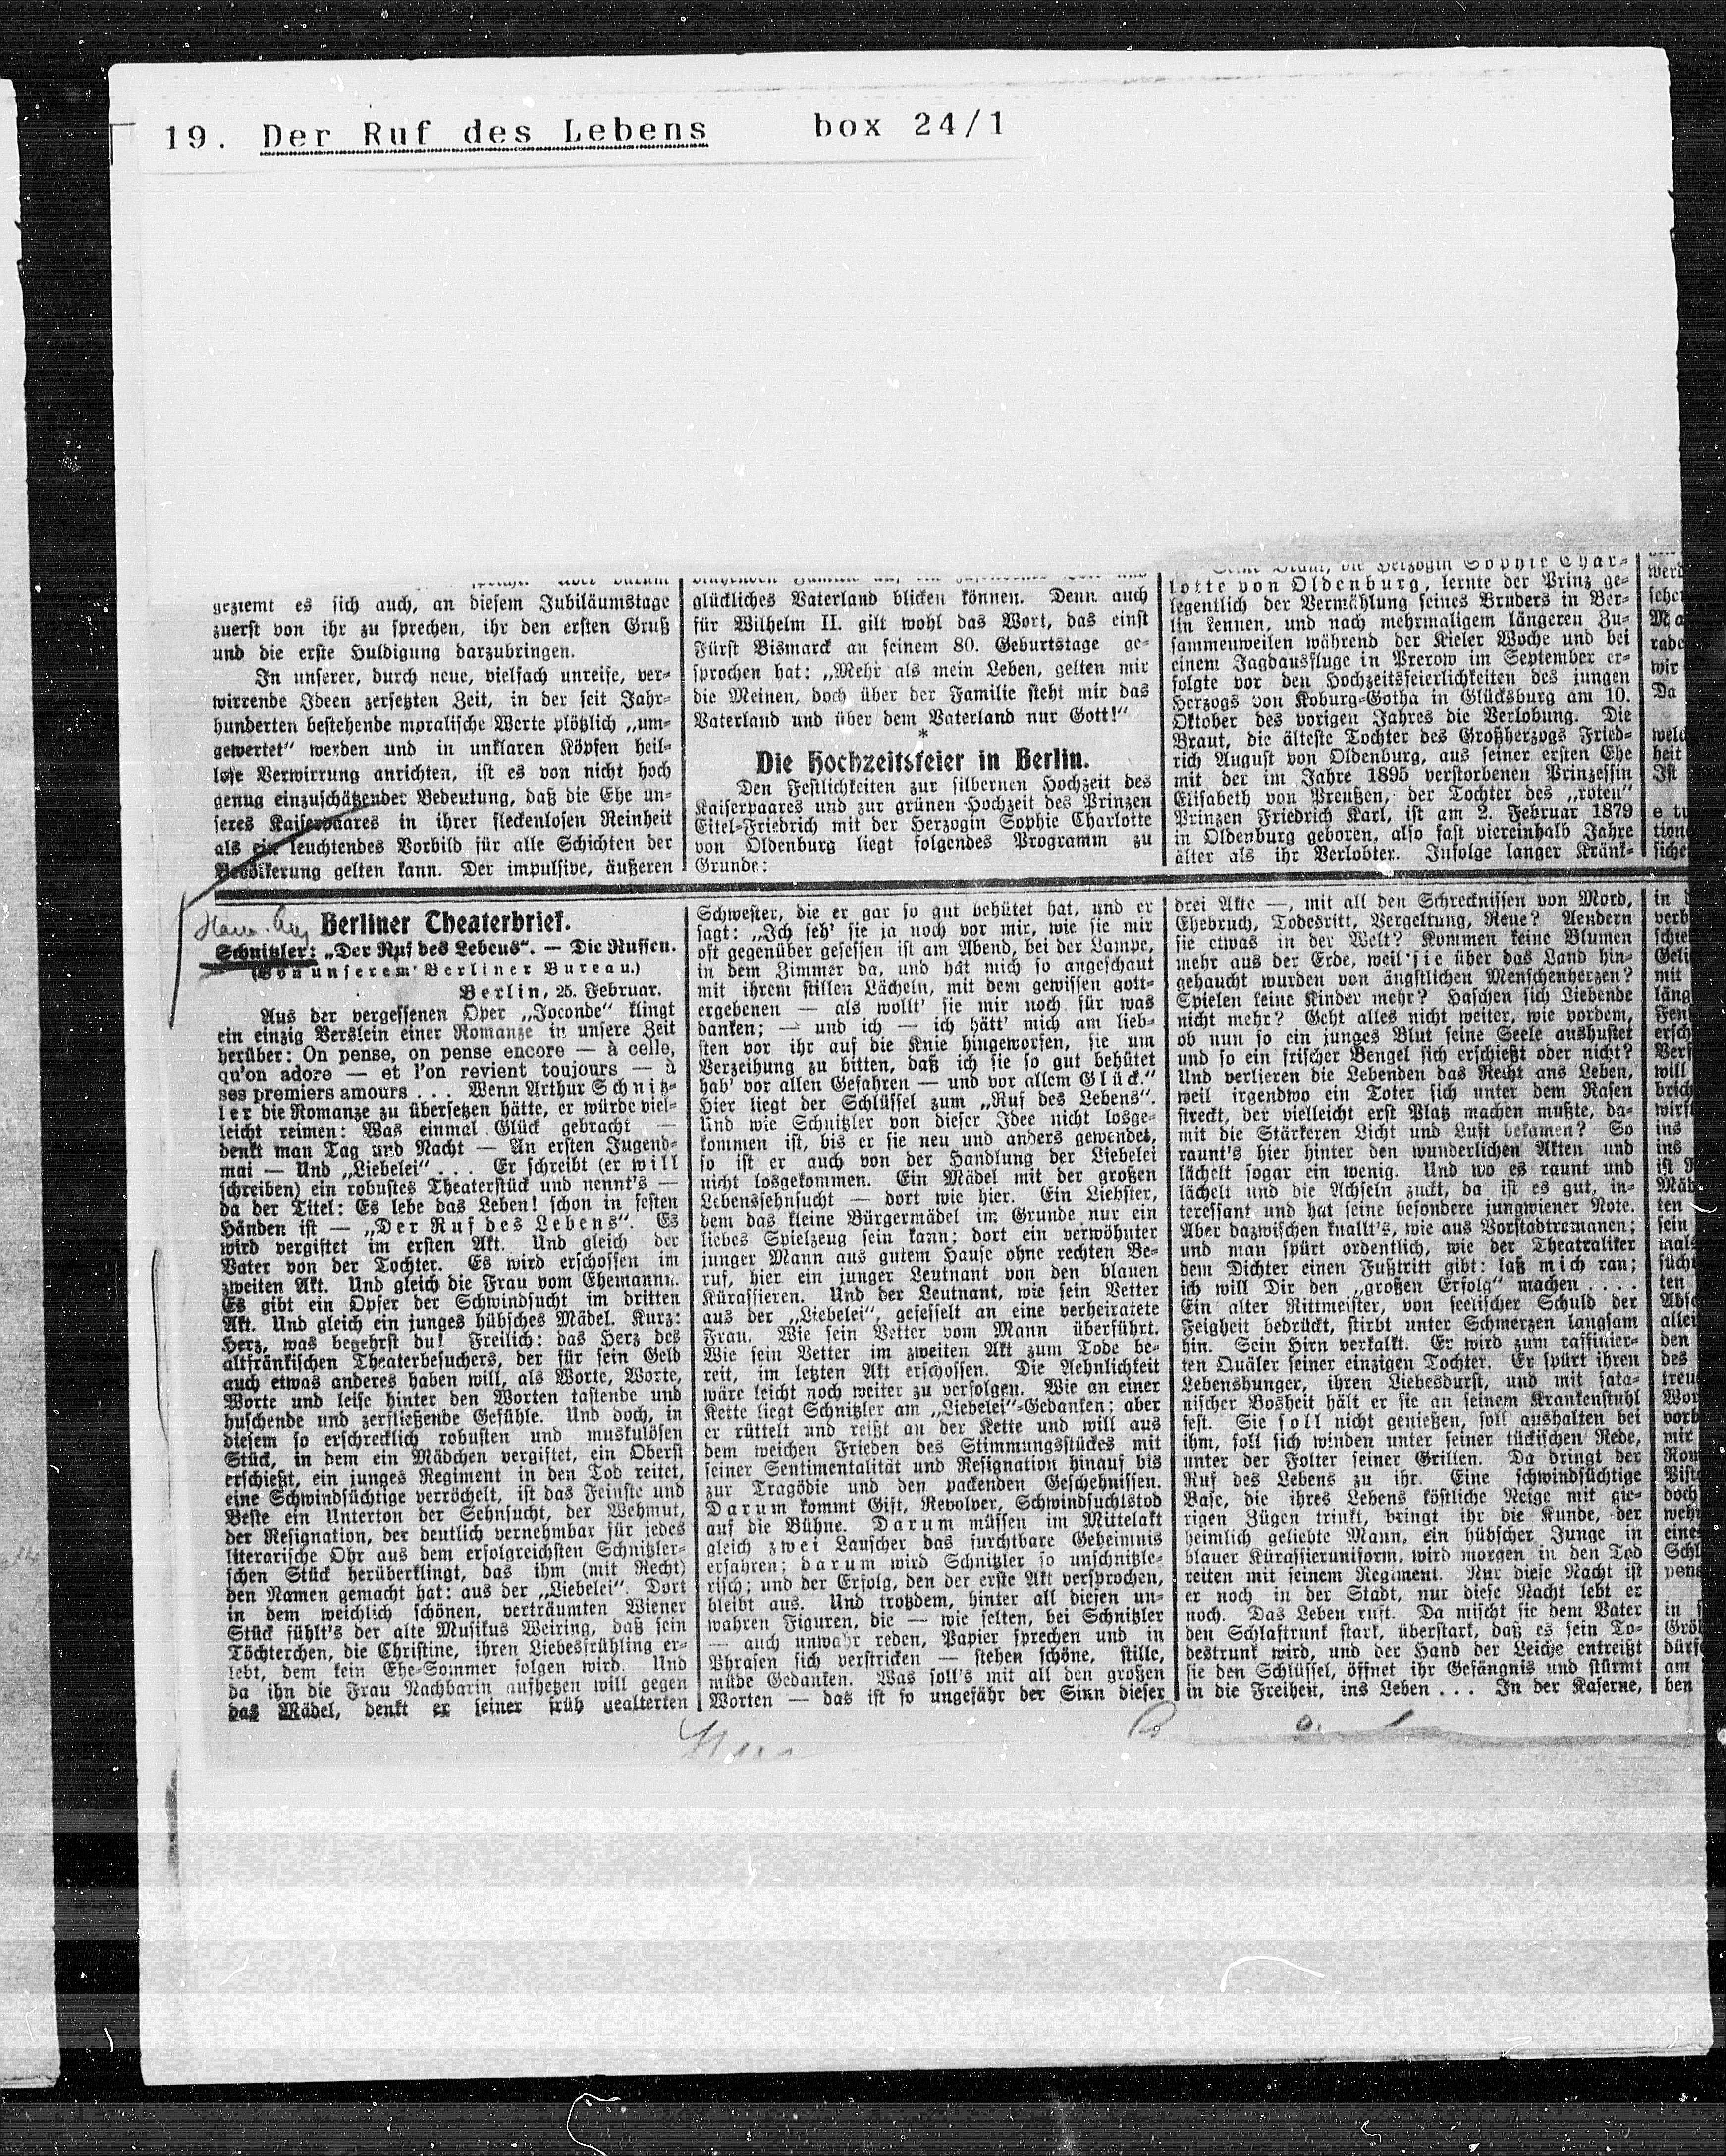 19. Der Ruf des Lebens box 24/1
geziemt es sich auch, an diesem Jubiläumstage
zuerst von ihr zu sprechen, ihr den ersten Gruß
und die erste Huldigung darzubringen.
In unserer, durch neue, vielfach unreife, ver-
wirrende Ideen zersetzten Zeit, in der seit Jahr-
hunderten bestehende moralische Werte plötzlich „um-
gewertet“ werden und in unklaren Köpfen heil-
lose Verwirrung anrichten, ist es von nicht hoch
genug einzuschätzender Bedeutung, daß die Ehe un-
seres Kaiserpaares in ihrer fleckenlosen Reinheit
als ein leuchtendes Vorbild für alle Schichten der
Bevölkerung gelten kann. Der impulsive, äußeren
glückliches Vaterland blicken können. Denn auch
für Wilhelm II. gilt wohl das Wort, das einst
Fürst Bismarck an seinem 80. Geburtstage ge-
sprochen hat: „Mehr als mein Leben, gelten mir
die Meinen, doch über der Familie steht mir das
Vaterland und über dem Vaterland nur Gott!“
*
Die Hochzeitsfeier in Berlin.
Den Festlichkeiten zur silbernen Hochzeit des
Kaiserpaares und zur grünen Hochzeit des Prinzen
Eitel-Friedrich mit der Herzogin Sophie Charlotte
von Oldenburg liegt folgendes Programm zu
Grunde:
Seine Braut, die Herzogin Sophie Char-
lotte von Oldenburg, lernte der Prinz ge-
legentlich der Vermählung seines Bruders in Ber-
lin kennen, und nach mehrmaligem längeren Zu-
sammenweilen während der Kieler Woche und bei
einem Jagdausfluge in Prerow im September er-
folgte vor den Hochzeitsfeierlichkeiten des jungen
Herzogs von Koburg-Gotha in Glücksburg am 10.
Oktober des vorigen Jahres die Verlobung. Die
Braut, die älteste Tochter des Großherzogs Fried-
rich August von Oldenburg, aus seiner ersten Ehe
mit der im Jahre 1895 verstorbenen Prinzessin
Elisabeth von Preußen, der Tochter des „roten“
Prinzen Friedrich Karl, ist am 2. Februar 1879
in Oldenburg geboren, also fast viereinhalb Jahre
älter als ihr Verlobter. Infolge langer Kränk-
Berliner Theaterbrief.
Schnitzler: „Der Ruf des Lebens“. — Die Russen.
(Von unserem Berliner Bureau.)
Berlin, 25. Februar.
Aus der vergessenen Oper „Joconde“ klingt
ein einzig Verslein einer Romanze in unsere Zeit
herüber: On pense, on pense encore — à celle,
qu'on adore — et l'on revient toujours — à
ses premiers amours . . . Wenn Arthur Schnitz-
ler die Romanze zu übersetzen hätte, er würde viel-
leicht reimen: Was einmal Glück gebracht —
denkt man Tag und Nacht — An ersten Jugend-
mai — Und „Liebelei“ . . . Er schreibt (er will
schreiben) ein robustes Theaterstück und nennt's —
da der Titel: Es lebe das Leben! schon in festen
Händen ist — „Der Ruf des Lebens“. Es
wird vergiftet im ersten Akt. Und gleich der
Vater von der Tochter. Es wird erschossen im
zweiten Akt. Und gleich die Frau vom Ehemann.
Es gibt ein Opfer der Schwindsucht im dritten
Akt. Und gleich ein junges hübsches Mädel. Kurz:
Herz, was begehrst du! Freilich: das Herz des
altfränkischen Theaterbesuchers, der für sein Geld
auch etwas anderes haben will, als Worte, Worte,
Worte und leise hinter den Worten tastende und
huschende und zerfließende Gefühle. Und doch, in
diesem so erschrecklich robusten und muskulösen
Stück, in dem ein Mädchen vergiftet, ein Oberst
erschießt, ein junges Regiment in den Tod reitet,
eine Schwindsüchtige verröchelt, ist das Feinste und
Beste ein Unterton der Sehnsucht, der Wehmut,
der Resignation, der deutlich vernehmbar für jedes
literarische Ohr aus dem erfolgreichsten Schnitzler-
schen Stück herüberklingt, das ihm (mit Recht)
den Namen gemacht hat: aus der „Liebelei“. Dort
in dem weichlich schönen, verträumten Wiener
Stück fühlt's der alte Musikus Weiring, daß sein
Töchterchen, die Christine, ihren Liebesfrühling er-
lebt, dem kein Ehe-Sommer folgen wird. Und
da ihn die Frau Nachbarin aufhetzen will gegen
das Mädel, denkt er seiner früh gealterten
Schwester, die er gar so gut behütet hat, und er
sagt: „Ich seh' sie ja noch vor mir, wie sie mir
oft gegenüber gesessen ist am Abend, bei der Lampe,
in dem Zimmer da, und hat mich so angeschaut
mit ihrem stillen Lächeln, mit dem gewissen gott-
ergebenen — als wollt' sie mir noch für was
danken; — und ich — ich hätt' mich am lieb-
sten vor ihr auf die Knie hingeworfen, sie um
Verzeihung zu bitten, daß ich sie so gut behütet
hab' vor allen Gefahren — und vor allem Glück.“
Hier liegt der Schlüssel zum „Ruf des Lebens“.
Und wie Schnitzler von dieser Idee nicht losge-
kommen ist, bis er sie neu und anders gewendet,
so ist er auch von der Handlung der Liebelei
nicht losgekommen. Ein Mädel mit der großen
Lebenssehnsucht — dort wie hier. Ein Liebster,
dem das kleine Bürgermädel im Grunde nur ein
liebes Spielzeug sein kann; dort ein verwöhnter
junger Mann aus gutem Hause ohne rechten Be-
ruf, hier ein junger Leutnant von den blauen
Kürassieren. Und der Leutnant, wie sein Vetter
aus der „Liebelei“, gefesselt an eine verheiratete
Frau. Wie sein Vetter vom Mann überführt.
Wie sein Vetter im zweiten Akt zum Tode be-
reit, im letzten Akt erschossen. Die Aehnlichkeit
wäre leicht noch weiter zu verfolgen. Wie an einer
Kette liegt Schnitzler am „Liebelei“-Gedanken; aber
er rüttelt und reißt an der Kette und will aus
dem weichen Frieden des Stimmungsstückes mit
seiner Sentimentalität und Resignation hinauf bis
zur Tragödie und den packenden Geschehnissen.
Darum kommt Gift, Revolver, Schwindsuchtstod
auf die Bühne. Darum müssen im Mittelakt
gleich zwei Lauscher das furchtbare Geheimnis
erfahren; darum wird Schnitzler so unschnitzle-
risch; und der Erfolg, den der erste Akt versprochen,
bleibt aus. Und trotzdem, hinter all diesen un-
wahren Figuren, die — wie selten, bei Schnitzler
— auch unwahr reden, Papier sprechen und in
Phrasen sich verstricken — stehen schöne, stille,
müde Gedanken. Was soll's mit all den großen
Worten — das ist so ungefähr der Sinn dieser
drei Akte —, mit all den Schrecknissen von Mord,
Ehebruch, Todesritt, Vergeltung, Reue? Aendern
sie etwas in der Welt? Kommen keine Blumen
mehr aus der Erde, weil sie über das Land hin-
gehaucht wurden von ängstlichen Menschenherzen?
Spielen keine Kinder mehr? Haschen sich Liebende
nicht mehr? Geht alles nicht weiter, wie vordem,
ob nun so ein junges Blut seine Seele aushustet
und so ein frischer Bengel sich erschießt oder nicht?
Und verlieren die Lebenden das Recht ans Leben,
weil irgendwo ein Toter sich unter dem Rasen
streckt, der vielleicht erst Platz machen mußte, da-
mit die Stärkeren Licht und Luft bekamen? So
raunt's hier hinter den wunderlichen Akten und
lächelt sogar ein wenig. Und wo es raunt und
lächelt und die Achseln zuckt, da ist es gut, in-
teressant und hat seine besondere jungwiener Note.
Aber dazwischen knallt's, wie aus Vorstadtromanen;
und man spürt ordentlich, wie der Theatraliker
dem Dichter einen Fußtritt gibt: laß mich ran;
ich will Dir den „großen Erfolg“ machen . . . .
Ein alter Rittmeister, von seelischer Schuld der
Feigheit bedrückt, stirbt unter Schmerzen langsam
hin. Sein Hirn verkalkt. Er wird zum raffinier-
ten Quäler seiner einzigen Tochter. Er spürt ihren
Lebenshunger, ihren Liebesdurst, und mit sata-
nischer Bosheit hält er sie an seinem Krankenstuhl
fest. Sie soll nicht genießen, soll aushalten bei
ihm, soll sich winden unter seiner tückischen Rede,
unter der Folter seiner Grillen. Da dringt der
Ruf des Lebens zu ihr. Eine schwindsüchtige
Base, die ihres Lebens köstliche Neige mit gie-
rigen Zügen trinkt, bringt ihr die Kunde, der
heimlich geliebte Mann, ein hübscher Junge in
blauer Kürassieruniform, wird morgen in den Tod
reiten mit seinem Regiment. Nur diese Nacht ist
er noch in der Stadt, nur diese Nacht lebt er
noch. Das Leben ruft. Da mischt sie dem Vater
den Schlaftrunk stark, überstark, daß es sein To-
destrunk wird, und der Hand der Leiche entreißt
sie den Schlüssel, öffnet ihr Gefängnis und stürmt
in die Freiheit, ins Leben . . . In der Kaserne,